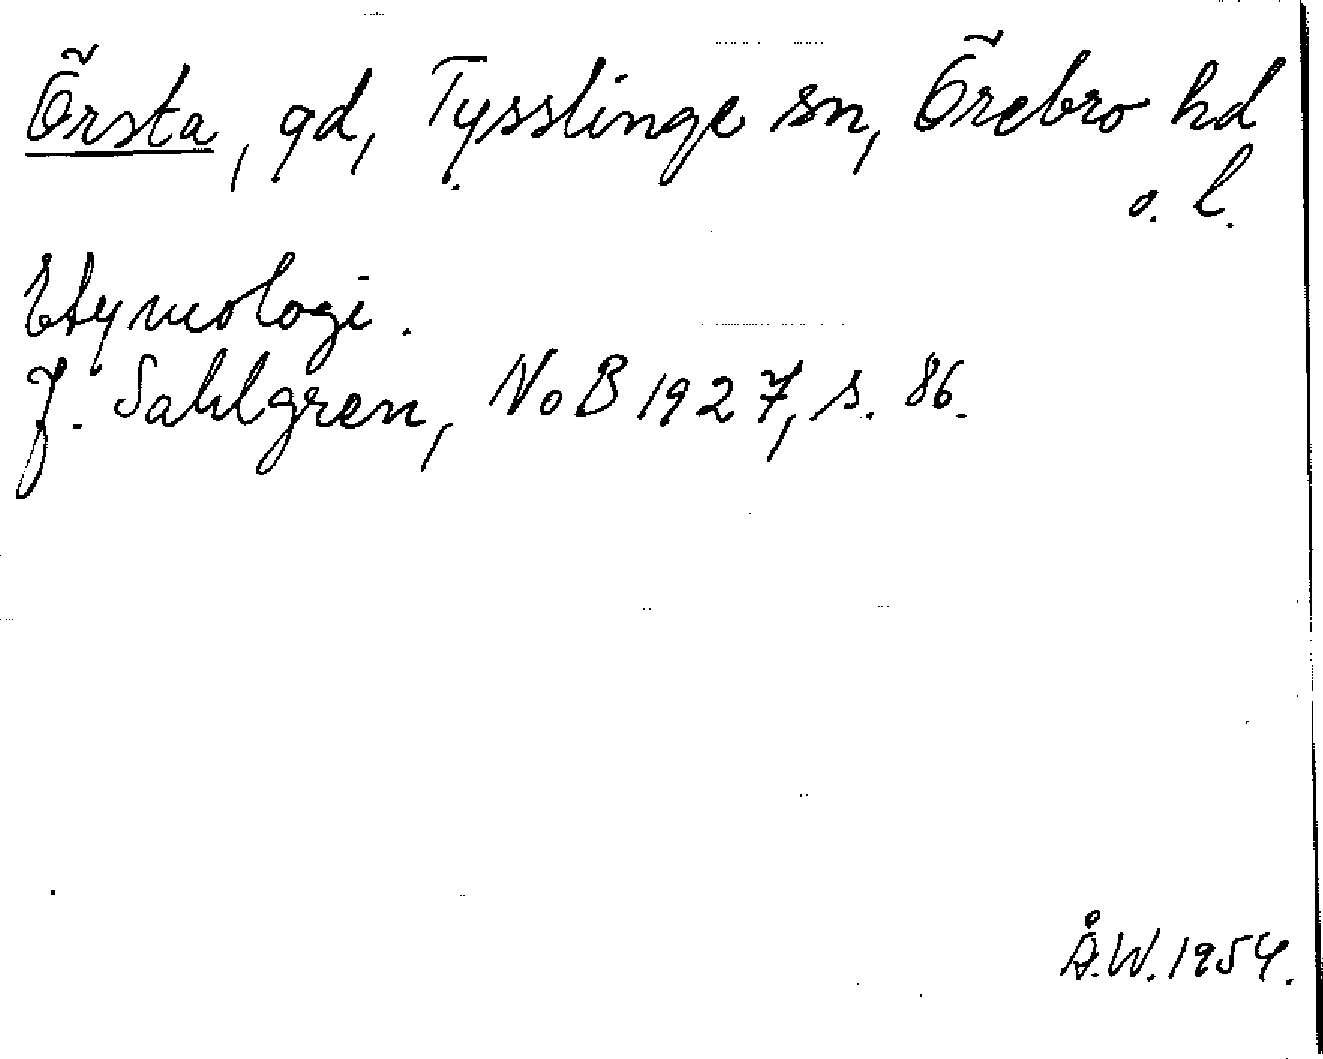 Örsta, gd, Tysslinge sn, Örebro hd
o. l.
Etymologi.
J. Sahlgren, NoB 1927, s. 86.
Å.W. 1954.